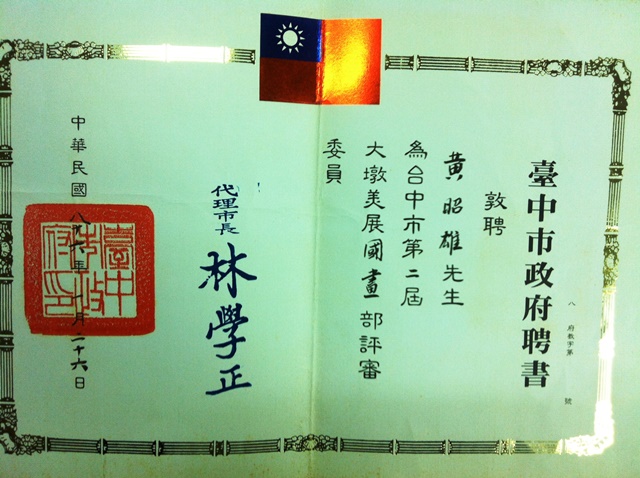 臺中市政府聘書
八 府教字第 號
敦聘
黃昭雄先生
為台中市第二屆
大墩美展國畫部評審
委員
代理市長 林學正
中華民國八十六年一月二十六日
臺中市政府印